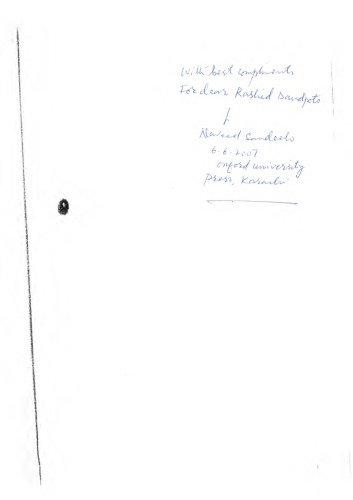 With best compliments
For dear Rashid Daudpoto
Naveed Sandeelo
6-6-2007
oxford university
press, Karachi